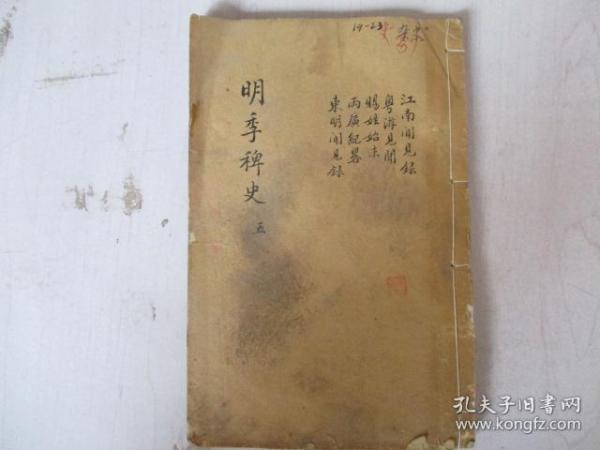 19-23
江南聞見錄
粵游見聞
賜姓始末
兩廣紀畧
東明聞見錄
明季稗史 五
孔夫子旧书网
www.kongfz.com